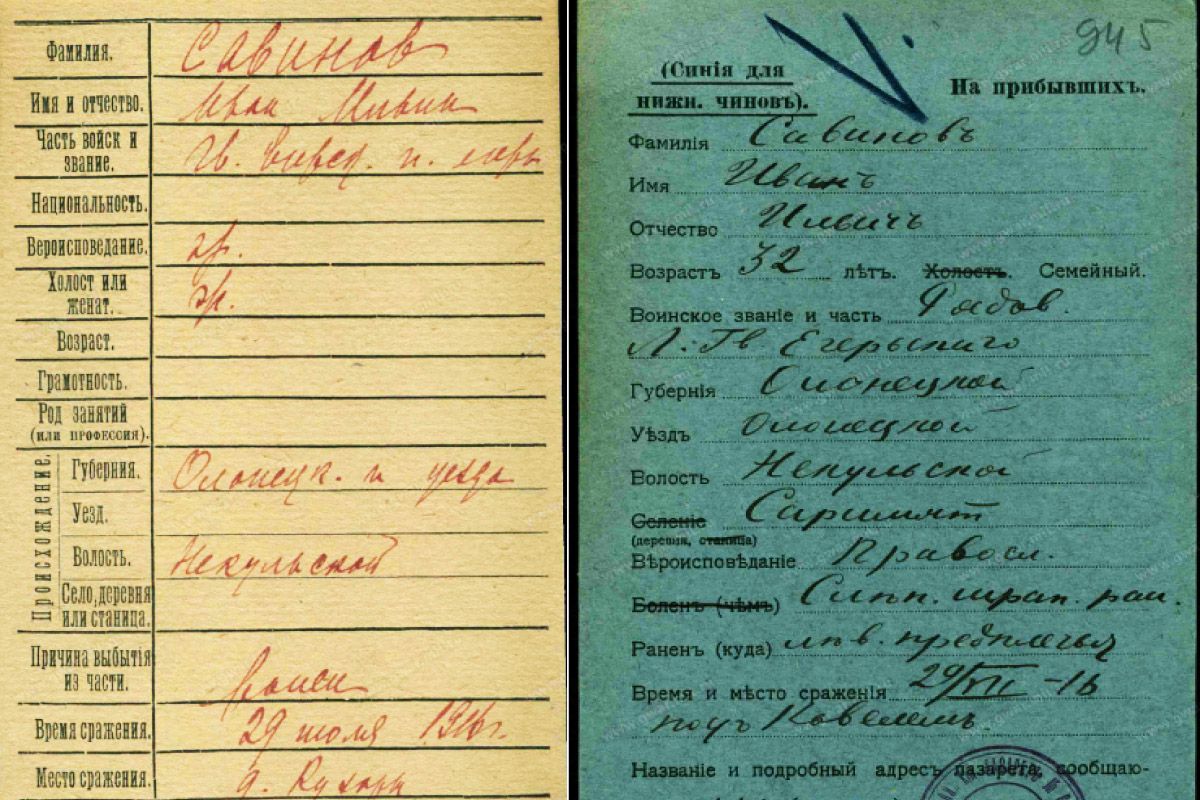 Фамилия. Савинов
Имя и отчество. Иван Ильин
Часть войск и
звание. гв. егерск. п. егерь
Национальность.
Вероисповедание. гр.
Холост или
женат. гр.
Возраст.
Грамотность.
Род занятий
(или профессия).
Происхождение.
Губерния. Олонецк. и уезда
Уезд.
Волость. Некульской
Село, деревня
или станица.
Причина выбытия
из части. ранен
Время сражения. 29 июля 1916г.
Место сражения. д. Кухары
945
(Синія для
нижн. чиновъ).
На прибывшихъ.
Фамилія Савиновъ
Имя Иванъ
Отчество Ильичъ
Возрастъ 32 лѣтъ. Холостъ. Семейный.
Воинское званіе и часть Рядов.
Л. Гв Егерьскиго
Губернія Олонецкой
Уѣздъ Олонецкой
Волость Некульской
Селеніе Саримягт
(деревня, станица)
Вѣроисповѣданіе Правосл.
Боленъ (чѣмъ) шрап. ран.
Раненъ (куда) предплечья
Время и мѣсто сраженія 29/VII -16
подъ Ковелемъ.
Названіе и подробный адресъ лазарета, сообщаю-